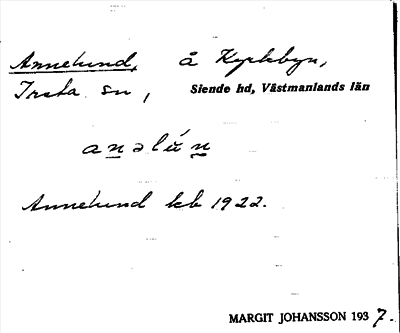 Annelund, å Kyrkbyn,
Irsta sn, Siende hd, Västmanlands län
anəlún
Annelund kb 1922.
MARGIT JOHANSSON 1937.